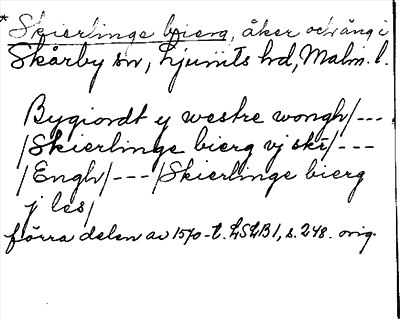 * Skierlinge bierg, åker och äng i
Skårby sn, Ljunits hd, Malm. l.
Bygiordt y westre wongh/---
/Skierlinge bierg vj skr/---
/Engh/---/Skierlinge bierg
j les/
förra delen av 1570-t. LSLB1, s. 248. orig.